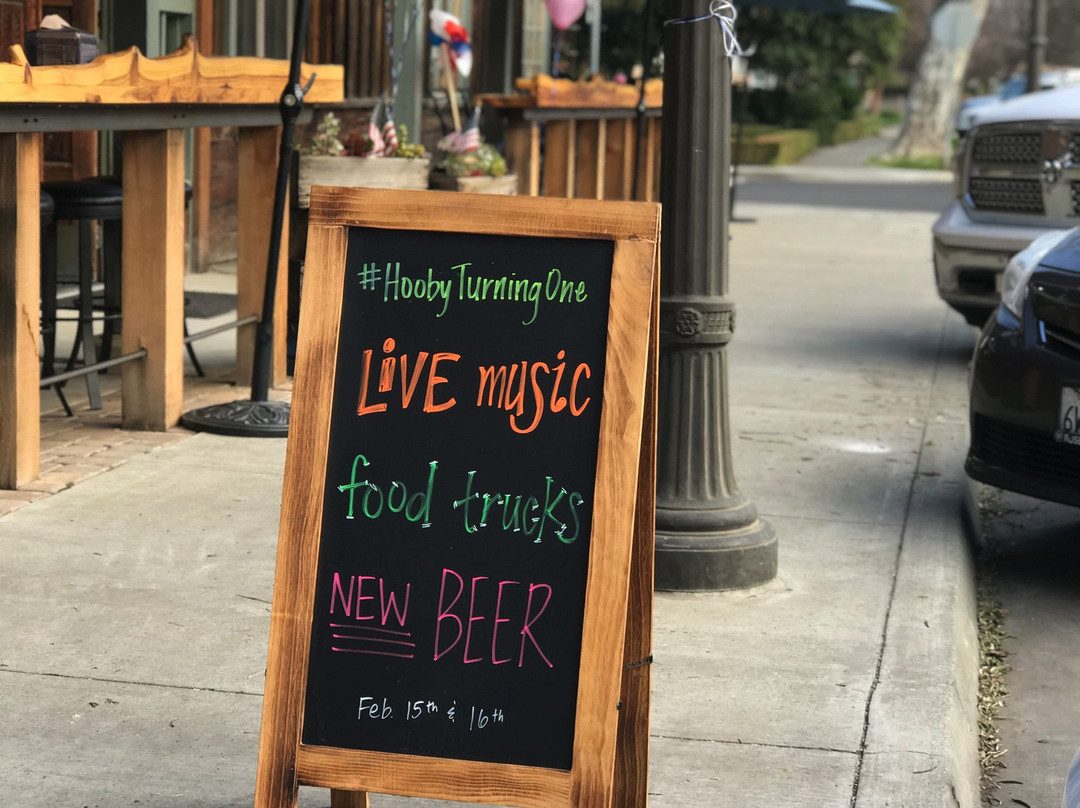 #HoobyTurningOne
LiVE music
food trucks
NEW BEER
Feb. 15th & 16th